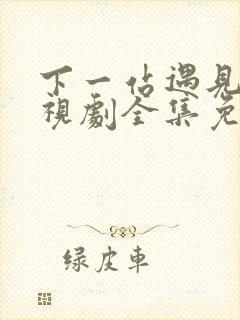 下一站遇見
視劇全集免
绿皮車